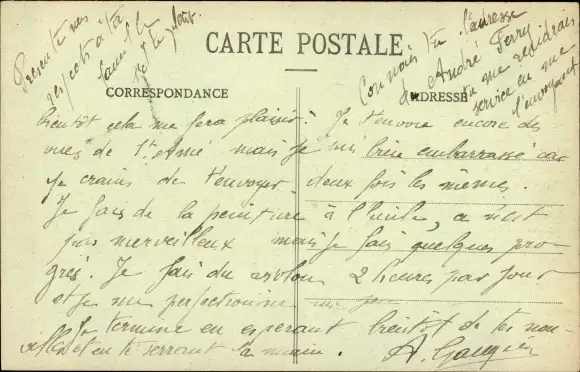 Présente mes
respects à ta
famille
CARTE POSTALE
Connais tu l'adresse
de André Ferry
tu me rendrais
service en me
l'envoyant
CORRESPONDANCE
ADRESSE
bientôt cela me fera plaisir. Je t'envoie encore des
vues de St Amé mais je suis bien embarrassé car
je crains de t'envoyer deux fois les mêmes.
Je fais de la peinture à l'huile, ce n'est
pas merveilleux mais je fais quelques pro-
grès. Je fais du violon 2 heures par jour
et je me perfectionne un peu
Je termine en espérant bientôt de tes nou-
velles et en te serrant la main. A.